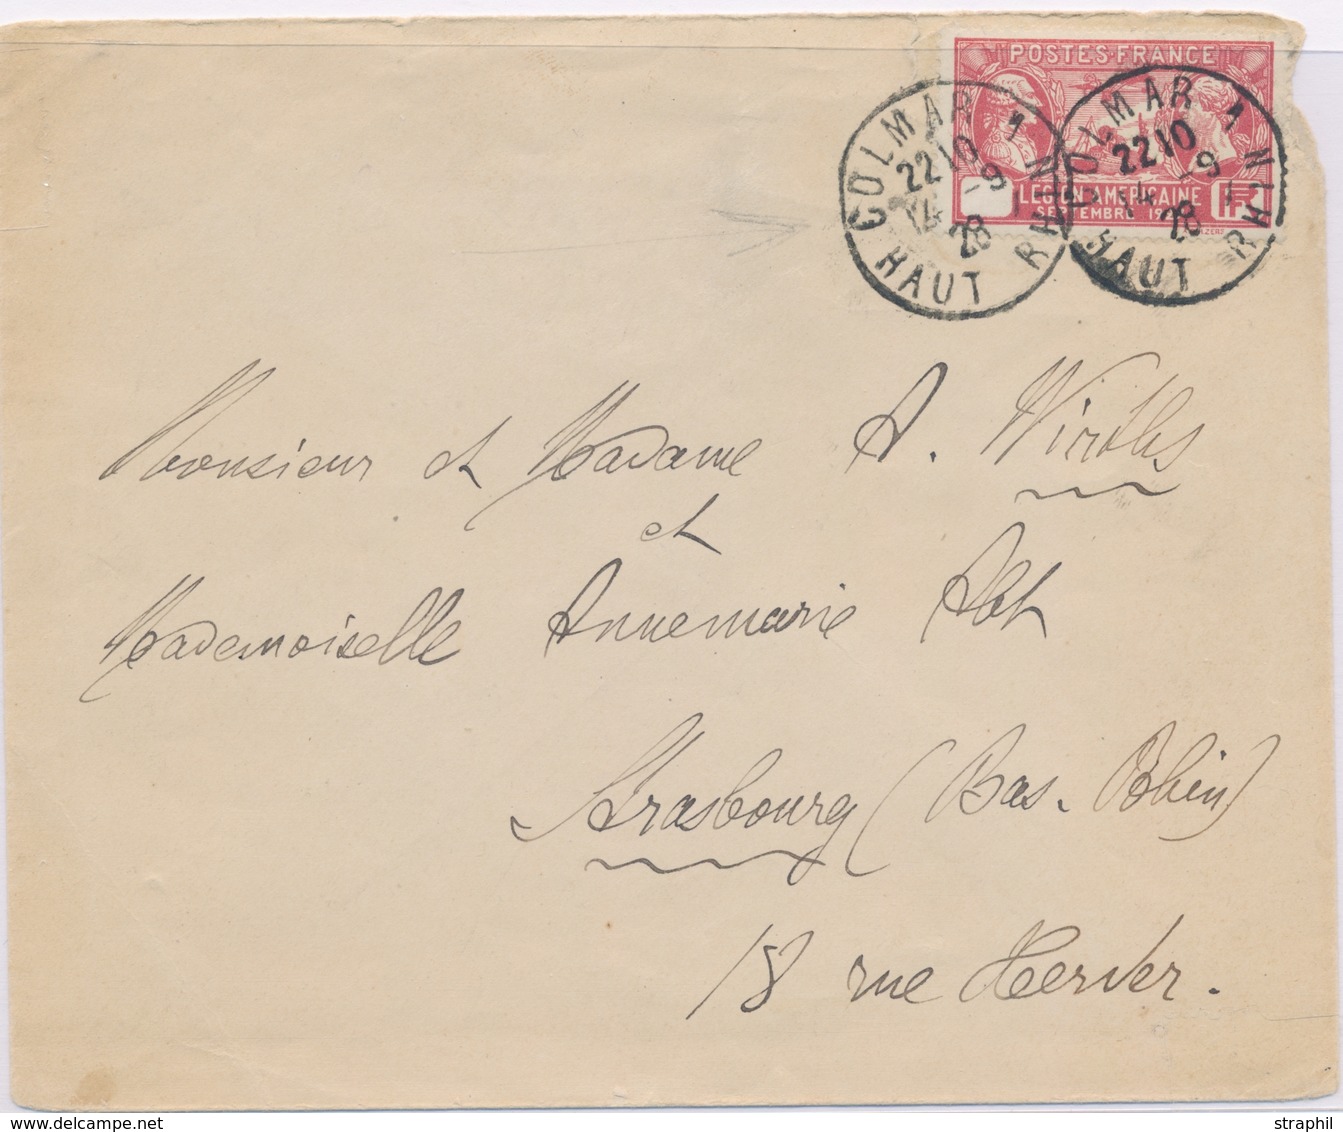 POSTES·FRANCE
LEGION AMERICAINE
SEPTEMBRE 19
F
COLMAR 1
2210
14 -9
28
HAUT RHIN
COLMAR 1
2210
14 -9
28
HAUT RHIN
Monsieur et Madame A. Wirths
et
Mademoiselle Annemarie Abt
Strasbourg (Bas. Rhin)
18 rue Herder.
www.delcampe.net
straphil